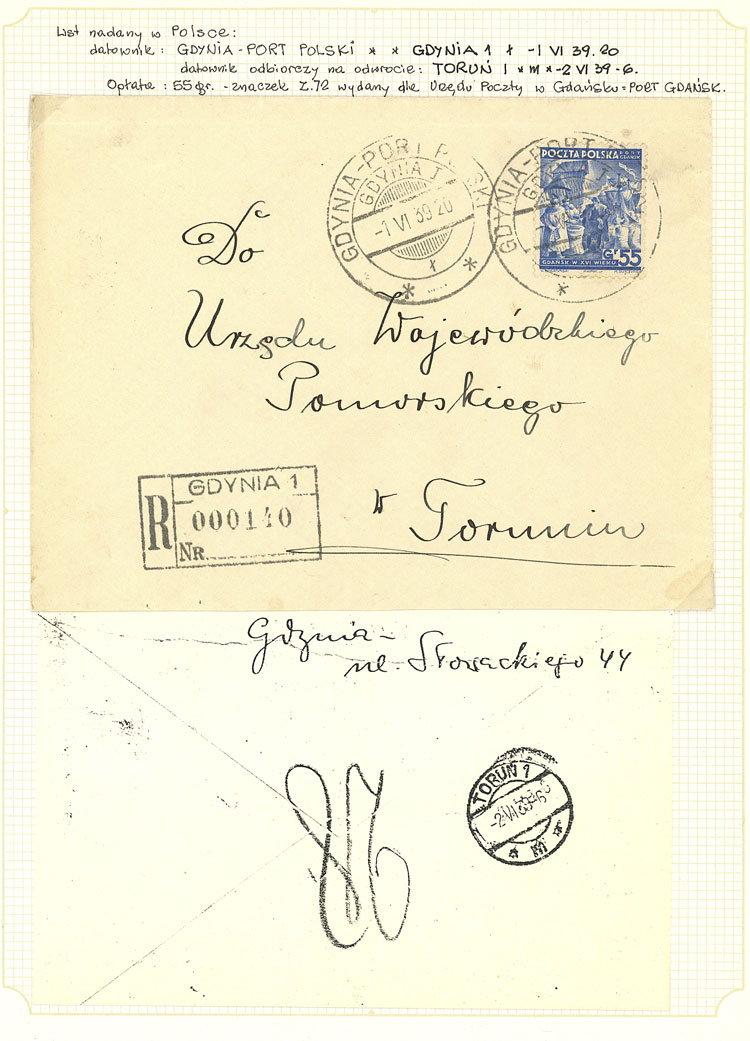 List nadany w Polsce:
datownik: GDYNIA-PORT POLSKI * * GDYNIA 1 ł -1 VI 39.20
datownik odbiorczy na odwrocie: TORUŃ 1 * m * -2 VI 39-6.
Opłata: 55 gr. - znaczek Z.72 wydany dla Urzędu Poczty w Gdańsku = PORT GDAŃSK.
GDYNIA-PORT POLSKI
GDYNIA 1
-1 VI 39 20
ł
* *
GDYNIA-PORT
*
POCZTA POLSKA PORT GDAŃSK
GR 55
GDAŃSK W XVI WIEKU
Do
Urzędu Wojewódzkiego
Pomorskiego
w Toruniu
R
GDYNIA 1
000140
NR
Gdynia-
ul. Słowackiego 44
TORUŃ 1
-2 VI 39-6
* m *